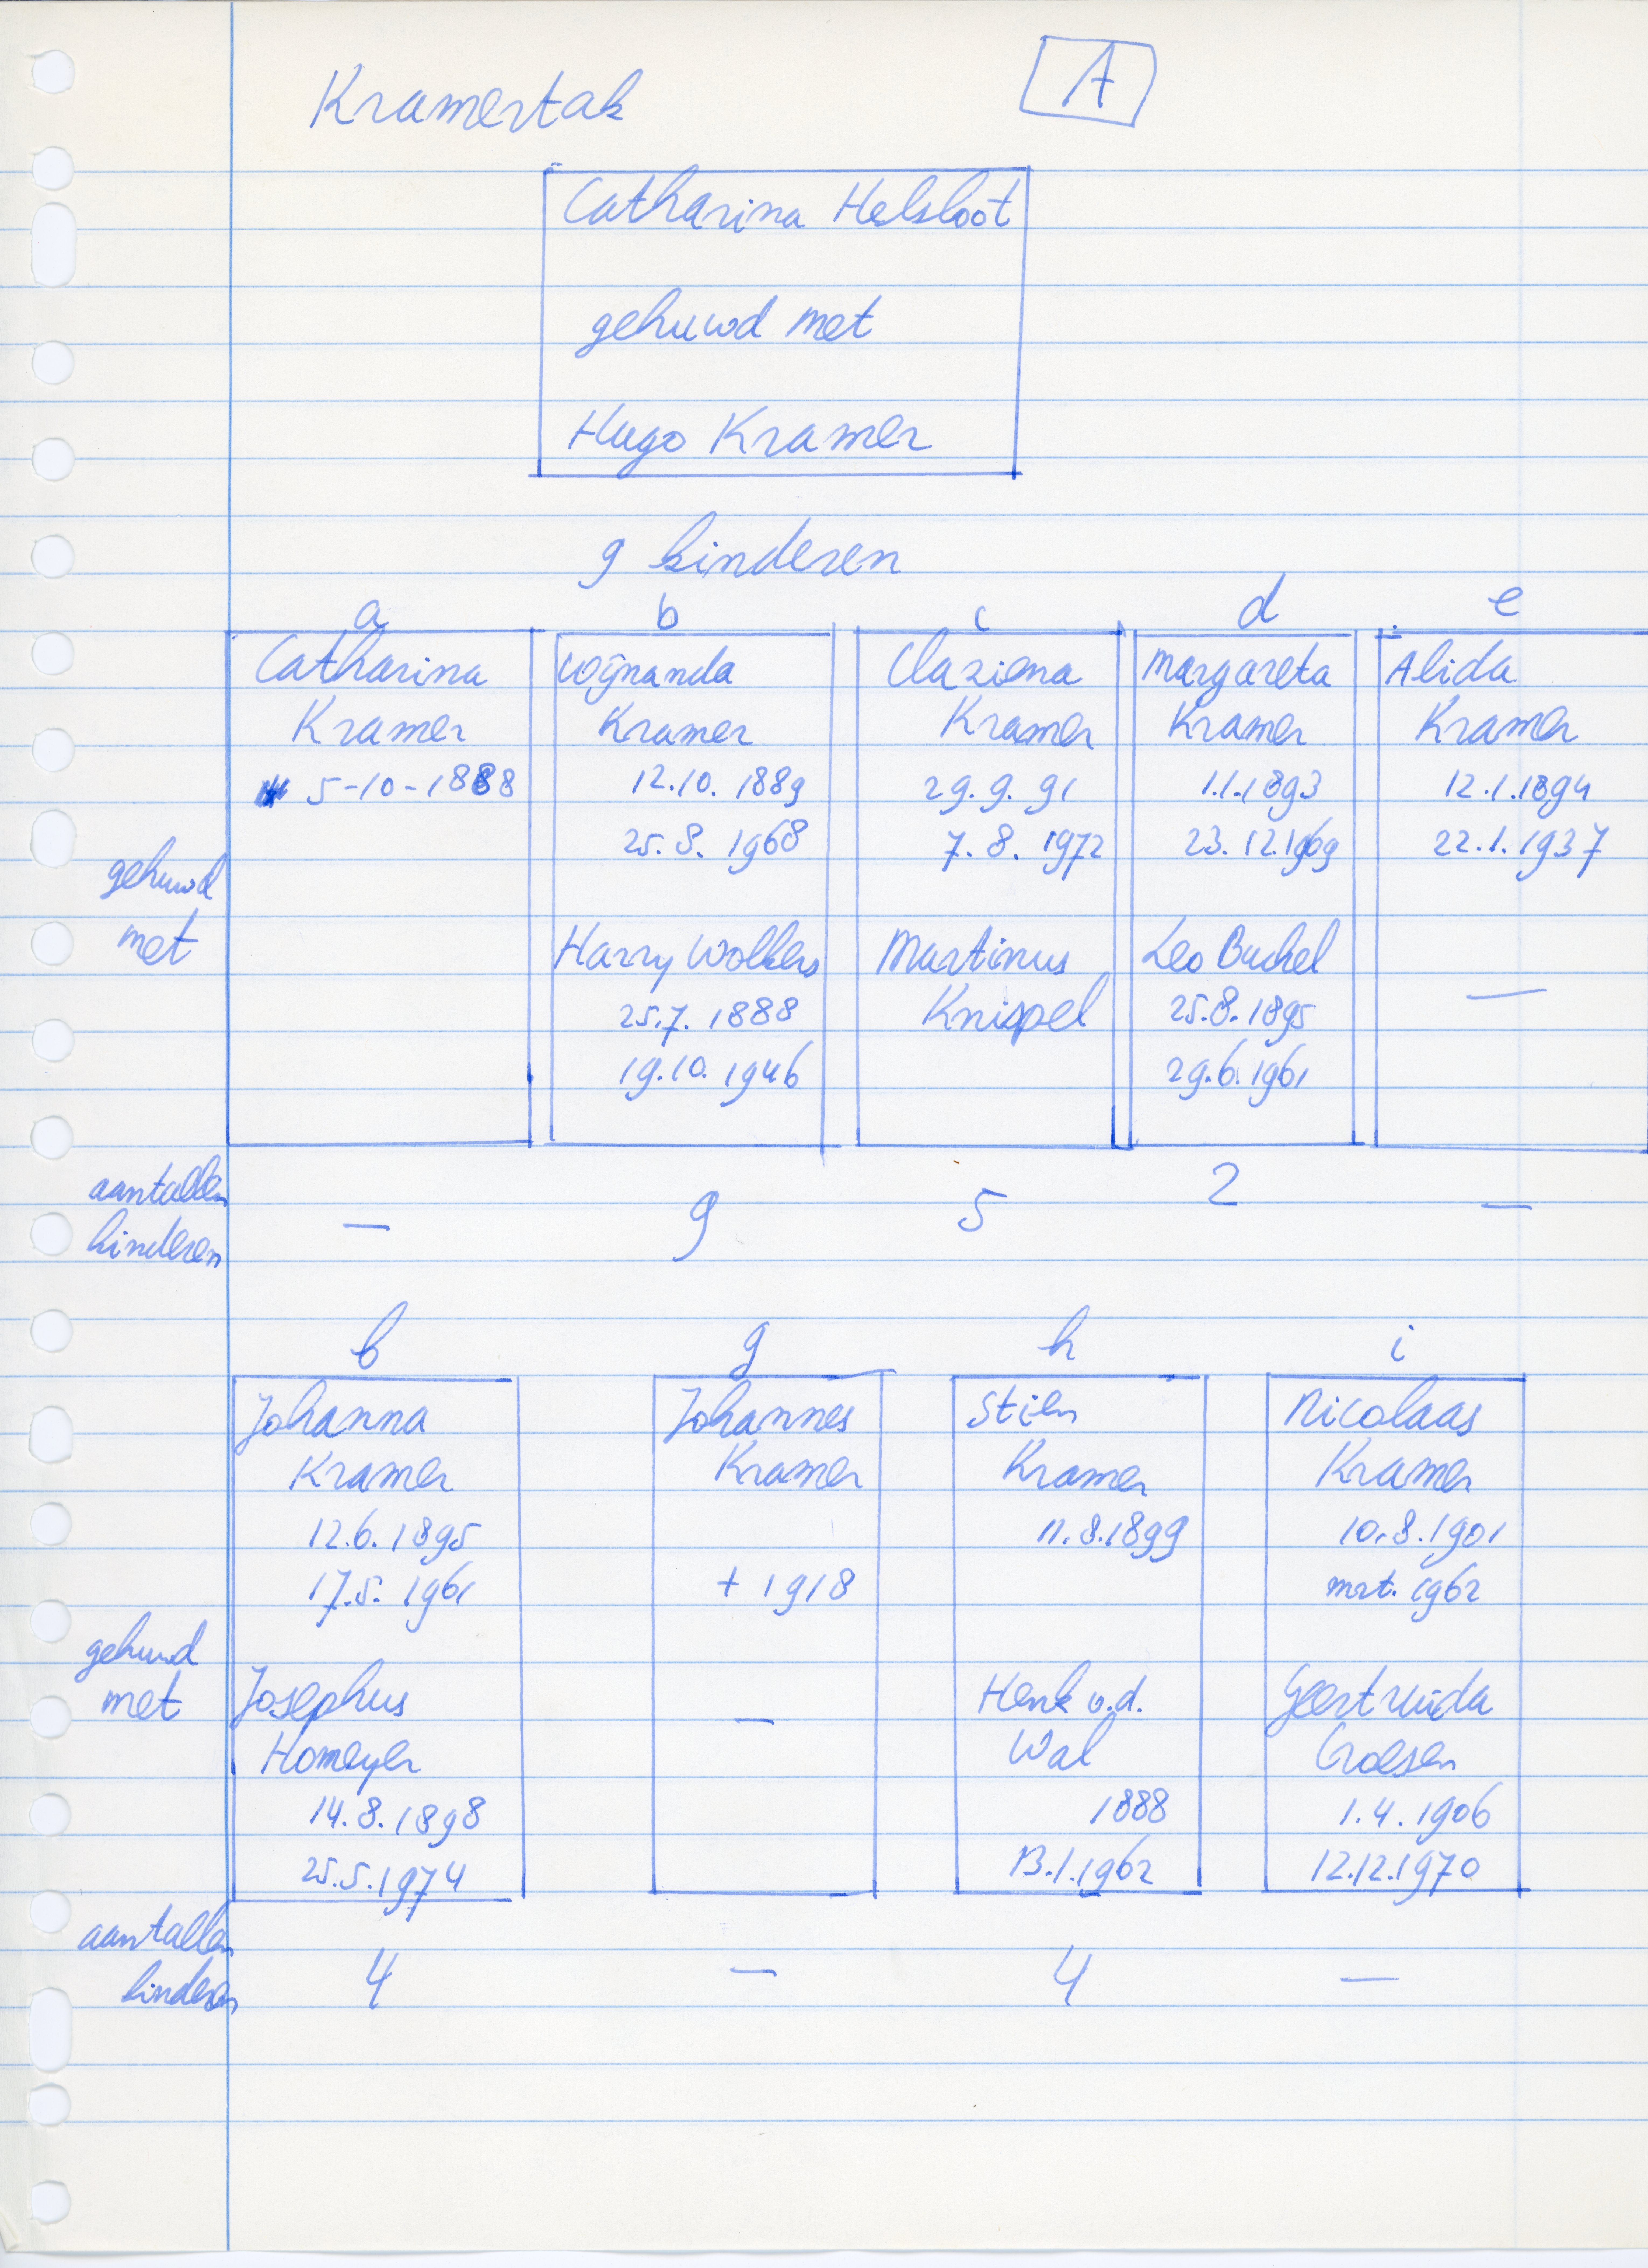 Kramertak
A
Catharina Helsloot
gehuwd met
Hugo Kramer
9 kinderen
a b c d e
Catharina Wijnanda Claziena Margareta Alida
Kramer Kramer Kramer Kramer Kramer
5-10-1888 12.10.1889 29.9.91 1.1.1893 12.1.1894
25.8.1968 7.8.1972 23.12.1969 22.1.1937
gehuwd
met Harry Wolkers Martinus Leo Buckel —
25.7.1888 Knispel 25.8.1895
19.10.1946 29.6.1961
aantallen
kinderen — 9 5 2 —
f g h i
Johanna Johannes Stien Nicolaas
Kramer Kramer Kramer Kramer
12.6.1895 11.8.1899 10.8.1901
17.5.1961 + 1918 mrt. 1962
gehuwd
met Josephus — Henk v.d. Geertruida
Homeyer Wal Croesen
14.8.1898 1888 1.4.1906
25.5.1974 13.1.1962 12.12.1970
aantallen
kinderen 4 — 4 —